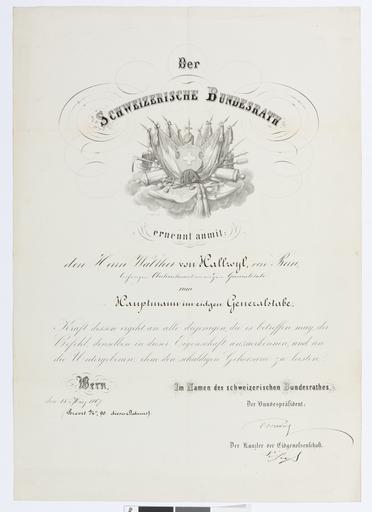 Der
SCHWEIZERISCHE BUNDESRATH
ernennt anmit:
den Herrn Walther von Hallwyl, von Bern,
zum
Hauptmann im eidgen. Generalstabe.
Kraft dessen ergeht an alle diejenigen, die es betreffen mag, der
Befehl, denselben in dieser Eigenschaft anzuerkennen, und an
die Untergebenen, ihm den schuldigen Gehorsam zu leisten.
Bern,
den 18
(Brevet No. 90 dieses Datums)
Im Namen des schweizerischen Bundesrathes,
Der Bundespräsident:
Der Kanzler der Eidgenossenschaft: